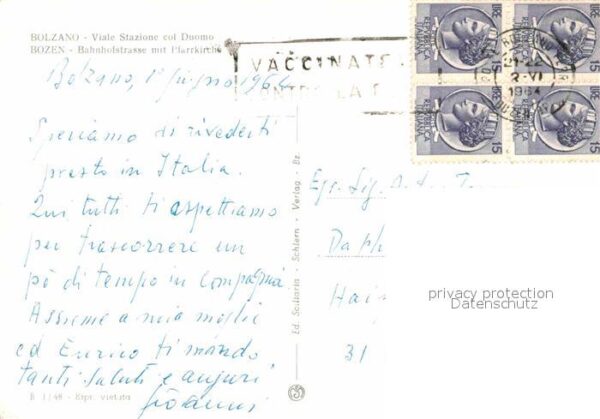 BOLZANO - Viale Stazione col Duomo
BOZEN - Bahnhofstrasse mit Pfarrkirche
Bolzano, 1° giugno 1964
Speriamo di rivederti
presto in Italia.
Qui tutti ti aspettiamo
per trascorrere un
pò di tempo in compagnia
Assieme a mia moglie
ed Enrico ti mando
tanti saluti e auguri
Giovanni
B 1/48 - Ripr. vietata
Ed. Scilaria - Schlern - Verlag - Bz.
VACCINATE
CONTRO LA
21-22
2-VI
1964
LIRE 15
REPVBBLICA
ITALIANA
LIRE 15
REPVBBLICA
ITALIANA
LIRE 15
REPVBBLICA
ITALIANA
LIRE 15
REPVBBLICA
ITALIANA
Egr. Sig.
31
privacy protection
Datenschutz